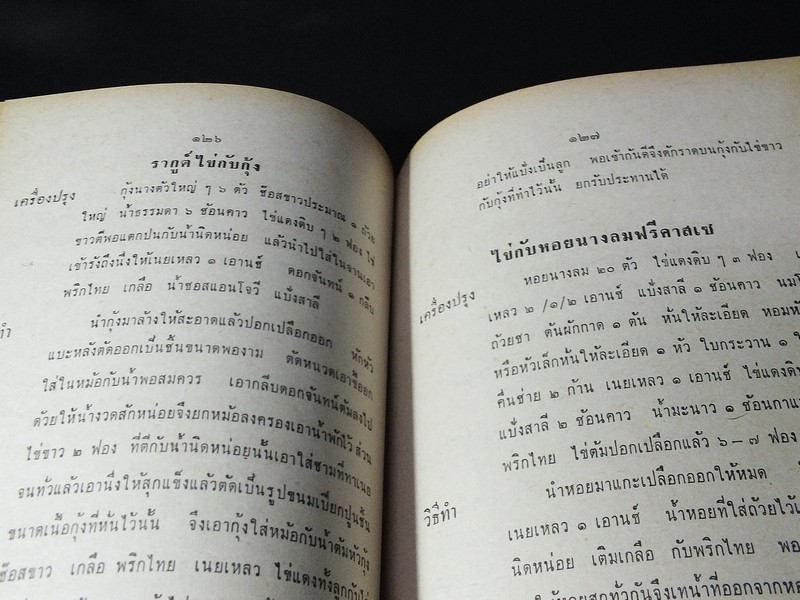 ๑๒๖
รากูด์ ไข่กับกุ้ง
เครื่องปรุง กุ้งนางตัวใหญ่ ๆ ๖ ตัว ซ๊อสขาวประมาณ ๑ ถ้วย
ใหญ่ น้ำธรรมดา ๖ ช้อนคาว ไข่แดงดิบ ๆ ๒ ฟอง ไข่
ขาวตีพอแตกปนกับน้ำนิดหน่อย แล้วนำไปใส่ในจานเอา
เข้ารังถึงนึ่งให้เนยเหลว ๑ เอานซ์ ดอกจันทน์ ๑ กลีบ
พริกไทย เกลือ น้ำซอสแอนโจวี แป้งสาลี
ทำ นำกุ้งมาล้างให้สะอาดแล้วปอกเปลือกออก หักหัว
แบะหลังตัดออกเป็นชิ้นขนาดพองาม ตัดหนวดเอาขี้ออก
ใส่ในหม้อกับน้ำพอสมควร เอากลีบดอกจันทน์ต้มลงไป
ด้วยให้น้ำงวดสักหน่อยจึงยกหม้อลงครองเอาน้ำพักไว้ ส่วน
ไข่ขาว ๒ ฟอง ที่ตีกับน้ำนิดหน่อยนั้นเอาใส่ชามที่ทาเนย
จนทั่วแล้วเอานึ่งให้สุกแข็งแล้วตัดเป็นรูปขนมเปียกปูนชิ้น
ขนาดเนื้อกุ้งที่หั่นไว้นั้น จึงเอากุ้งใส่หม้อกับน้ำต้มหัวกุ้ง
ซ๊อสขาว เกลือ พริกไทย เนยเหลว ไข่แดงทั้งลูกกับไข่
๑๒๗
อย่าให้แป้งเป็นลูก พอเข้ากันดีจึงตักราดบนกุ้งกับไข่ขาว
กับกุ้งที่ทำไว้นั้น ยกรับประทานได้
ไข่กับหอยนางลมฟรีคาสเซ
เครื่องปรุง หอยนางลม ๒๐ ตัว ไข่แดงดิบ ๆ ๓ ฟอง
เหลว ๒ /๑/๒ เอานซ์ แป้งสาลี ๑ ช้อนคาว นมโ
ถ้วยชา ต้นผักกาด ๑ ต้น หั่นให้ละเอียด หอมหัว
หรือหัวเล็กหั่นให้ละเอียด ๑ หัว ใบกระวาน ๑ ใ
คื่นช่าย ๒ ก้าน เนยเหลว ๑ เอานซ์ ไข่แดงดิบ
แป้งสาลี ๒ ช้อนคาว น้ำมะนาว ๑ ช้อนกาแ
พริกไทย ไข่ต้มปอกเปลือกแล้ว ๖ – ๗ ฟอง
วิธีทำ นำหอยมาแกะเปลือกออกให้หมด ใ
เนยเหลว ๑ เอานซ์ น้ำหอยที่ใส่ถ้วยไว้เ
นิดหน่อย เติมเกลือ กับพริกไทย พอ
ให้หอยสุกทั่วกันจึงเทน้ำที่ออกจากหอ